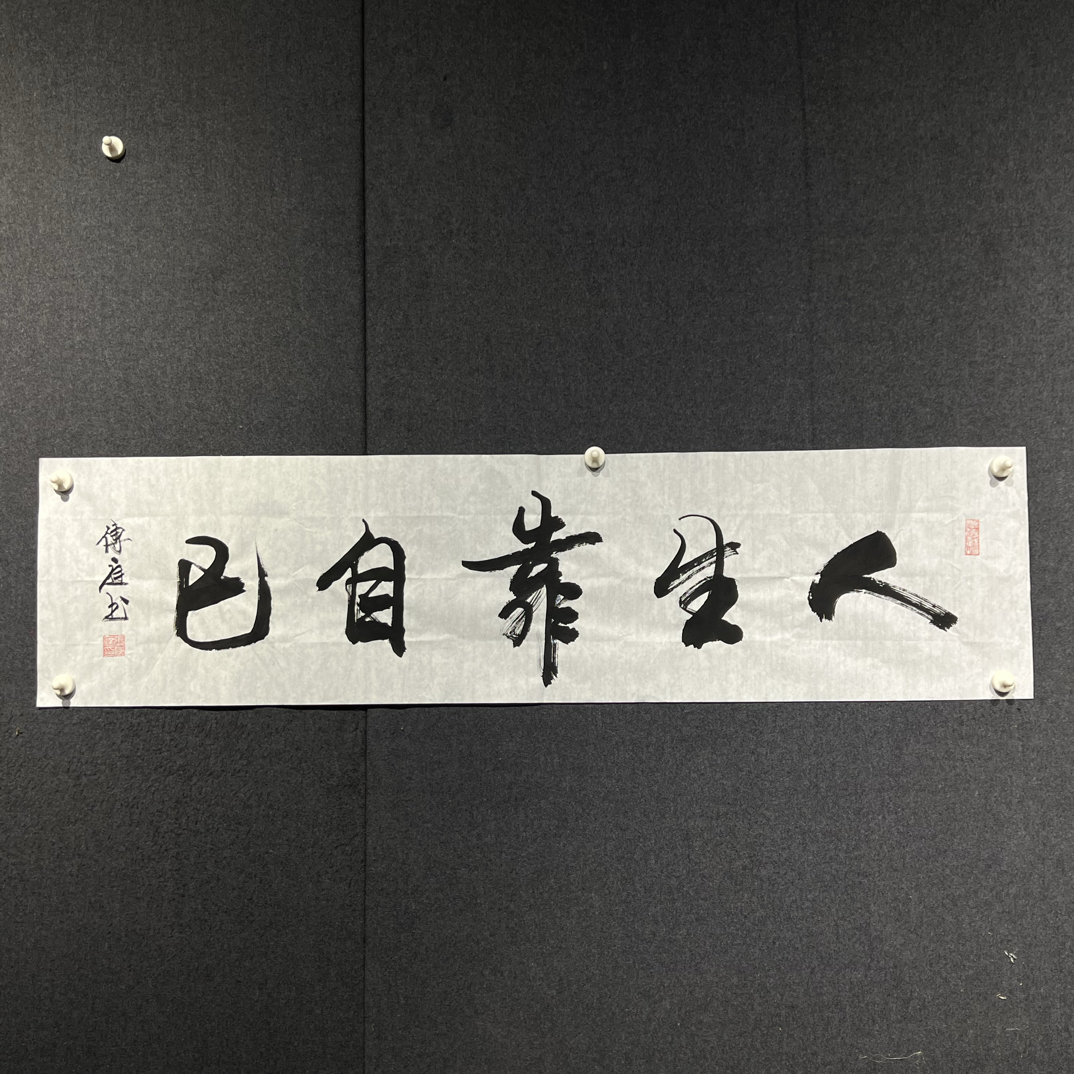 人生靠自己
傅庭书